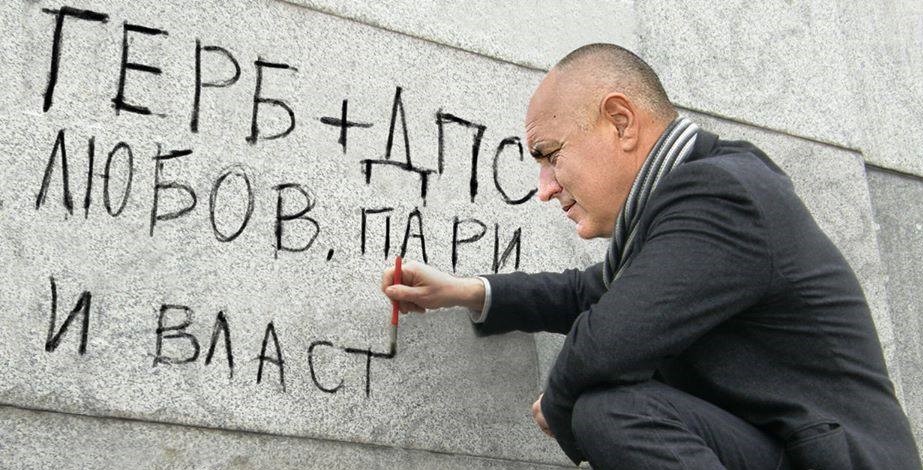 ГЕРБ + ДПС
ЛЮБОВ, ПАРИ
И ВЛАСТ